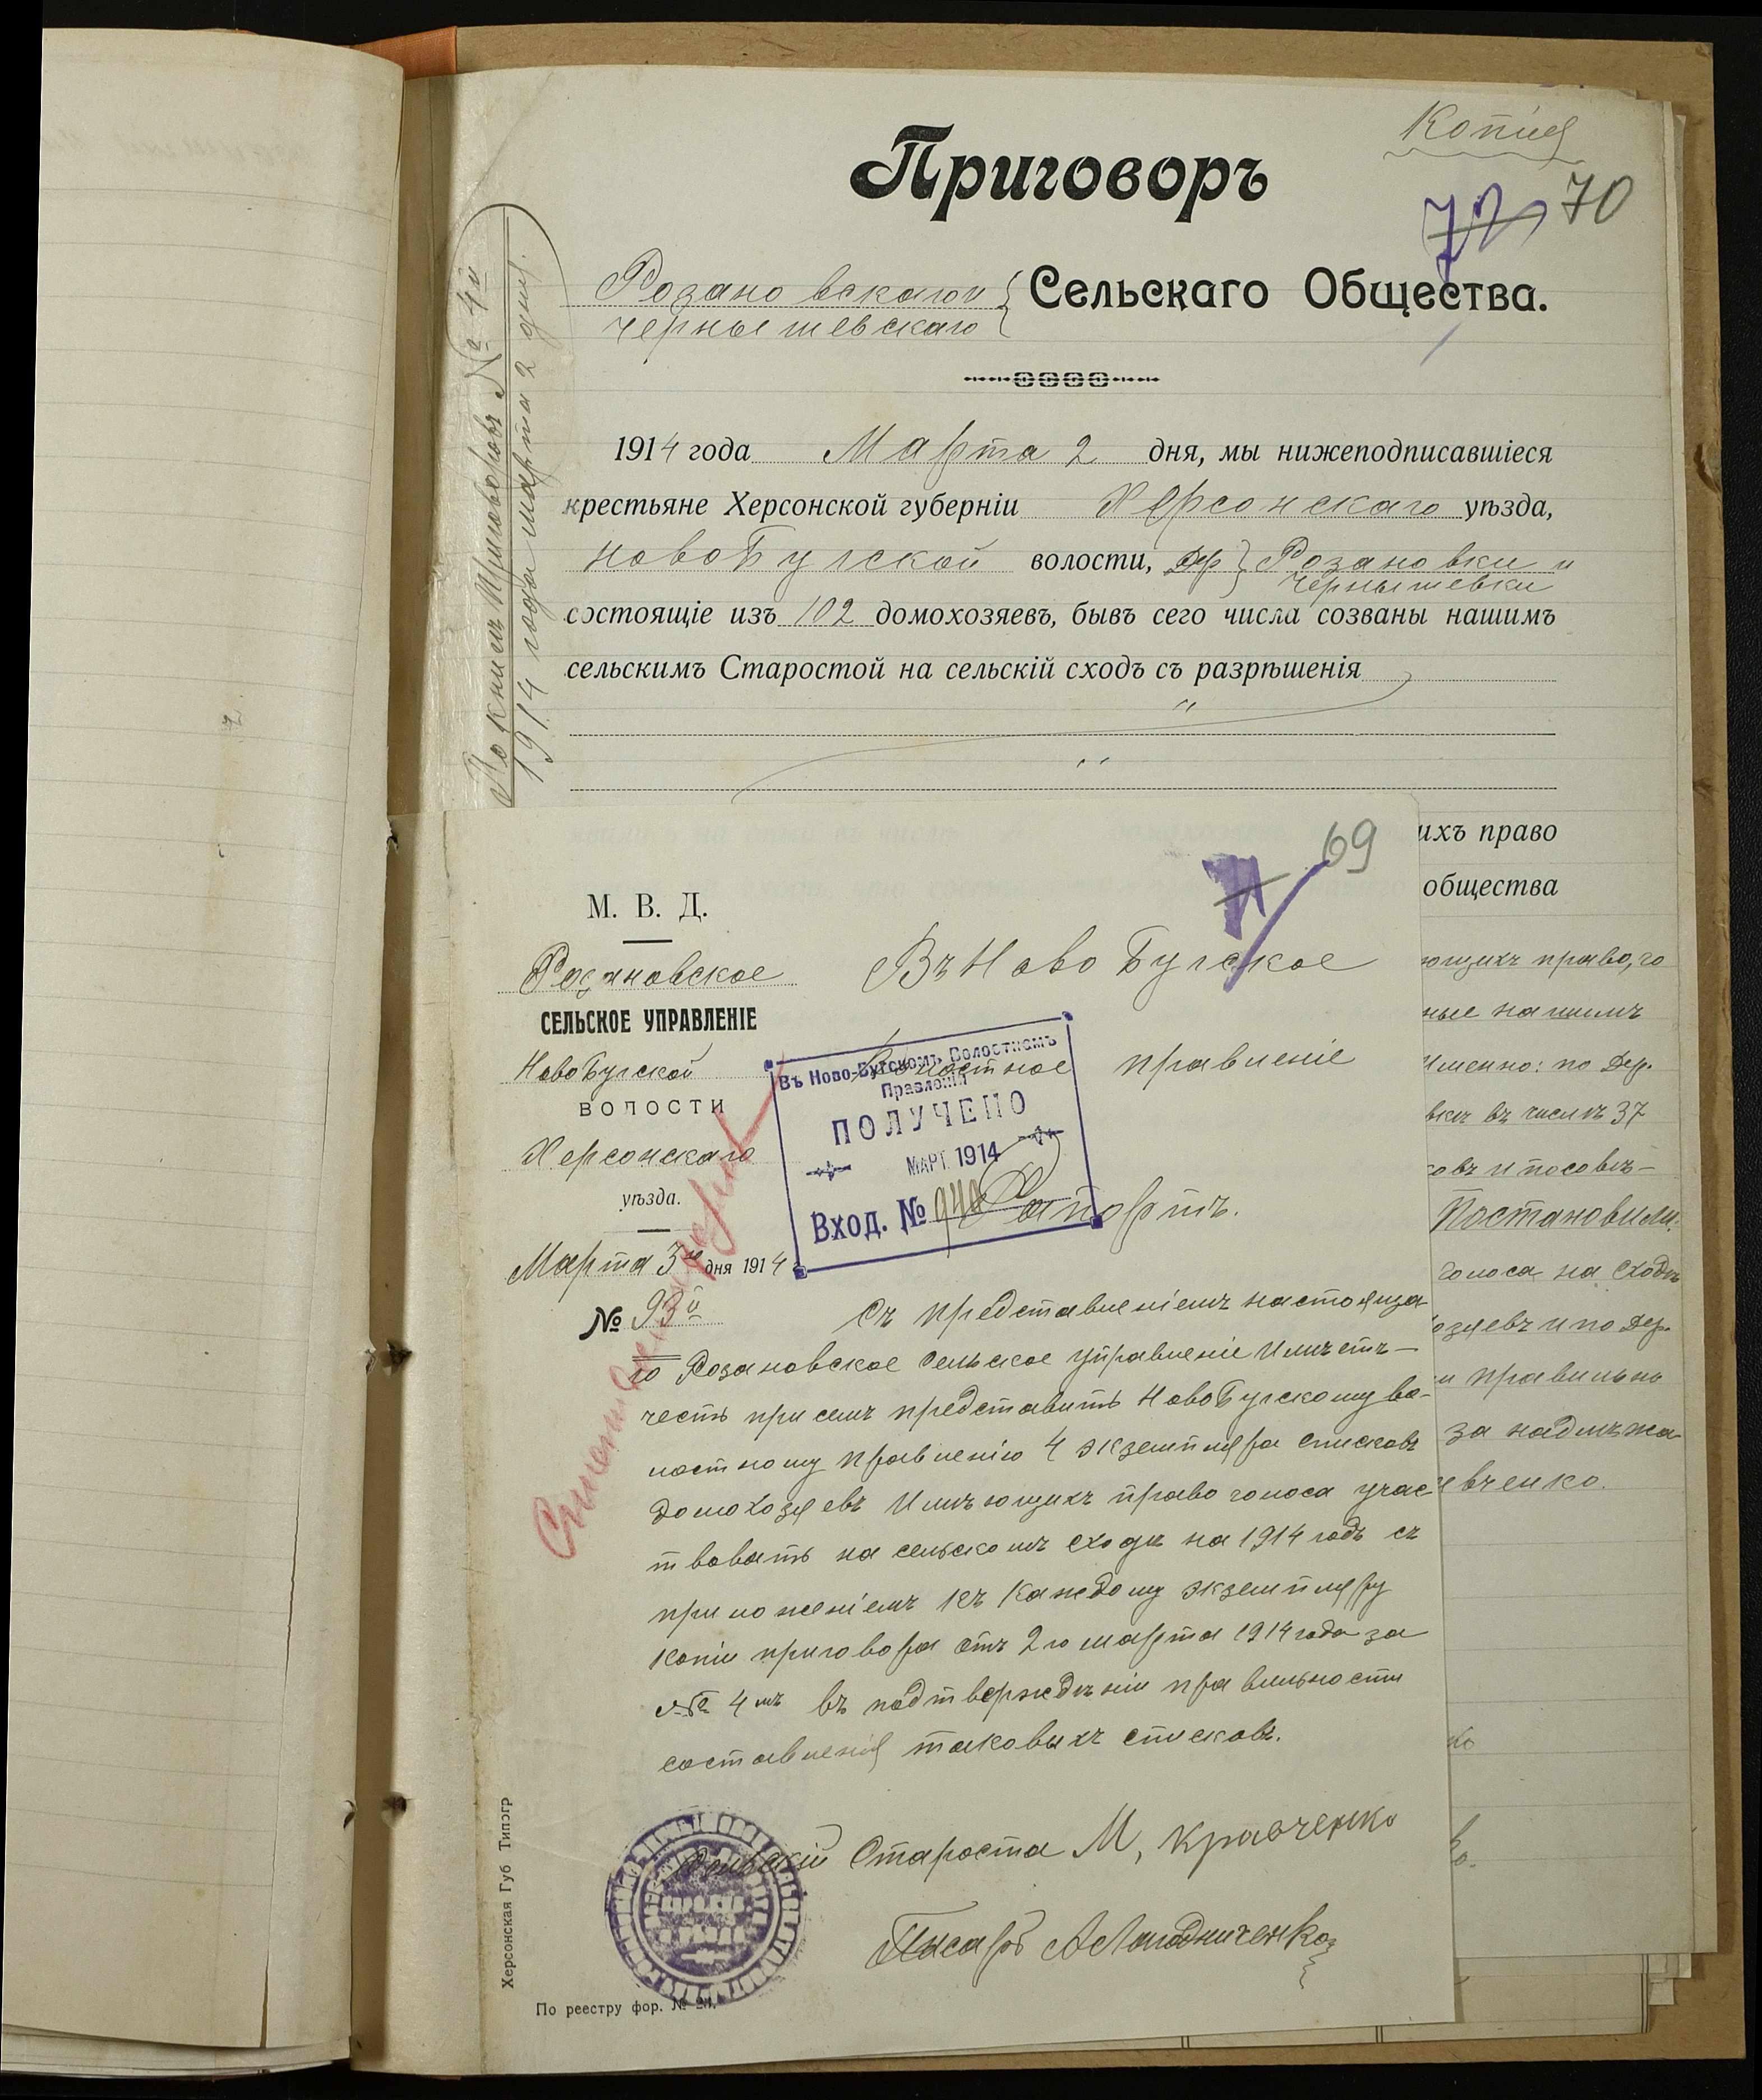 Копія
Приговоръ
72 70
Розановскаго и } Сельскаго Общества.
Чернышевскаго
По книгѣ Приговоровъ № 4й
1914 года марта 2 дня.
1914 года Марта 2 дня, мы нижеподписавшіеся
крестьяне Херсонской губерніи Херсонскаго уѣзда,
новоБугской волости, Дер } Розановки и
Чернышевки
состоящіе изъ 102 домохозяевъ, бывъ сего числа созваны нашимъ
сельскимъ Старостой на сельскій сходъ съ разрѣшенія
ихъ право
общества
ющихъ право, го
ные нашимъ
Именно: по Дер.
вкѣ въ числѣ 37
овъ и посовѣ-
Постановили:
голоса на сходѣ
озяевъ и по Дер.
и правильно
за надлежа-
вченко.
69
М. В. Д.
Розановское
СЕЛЬСКОЕ УПРАВЛЕНІЕ
НовоБугской
ВОЛОСТИ
Херсонскаго
уѣзда.
Марта 3го дня 1914
№ 93й
Въ НовоБугское
Волостное правленіе
Въ Ново-Бугскомъ Волостномъ
Правленіи
ПОЛУЧЕНО
МАРТ 1914
Вход. № 940
Рапортъ.
Съ представленіемъ настояща
го Розановское сельское управленіе Имѣетъ-
честь при семъ представить НовоБугскому во-
лостному правленію 4 экземпляра списковъ
домохозяевъ Имѣющихъ право голоса учас
твовать на сельскомъ сходѣ на 1914 годъ съ
приложеніемъ къ каждому экземпляру
копіи приговора отъ 2го марта 1914 года за
№ 4мъ въ подтвержденіи правильности
составленія таковыхъ списковъ.
Сельскій Староста М, Кравченко
Писарь А Лагодниченко
Херсонская Губ Типогр
По реестру фор. № 24.